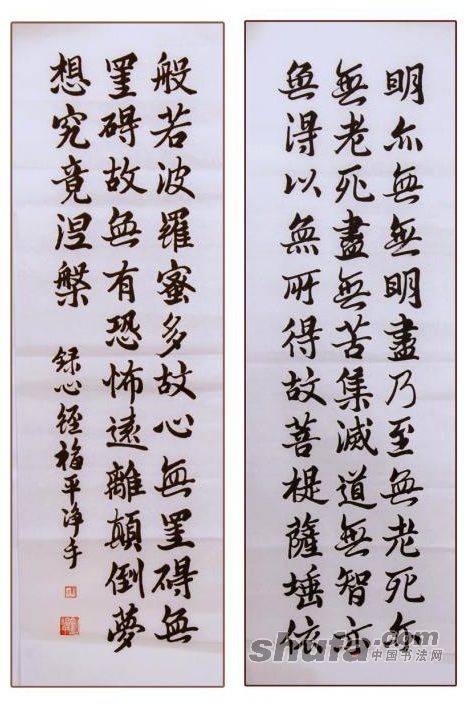 明亦無無明盡乃至無老死亦
無老死盡無苦集滅道無智亦
無得以無所得故菩提薩埵依
般若波羅蜜多故心無罣碍無
罣碍故無有恐怖遠離顛倒夢
想究竟涅槃
録心經福平净手
shufa.com
中国书法网